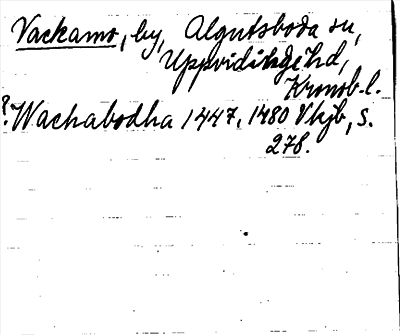 Vackamo, by, Algutsboda sn,
Uppvidinge hd,
Kronob. l.
? Wachabodha 1447, 1480 Vkjb, s.
278.